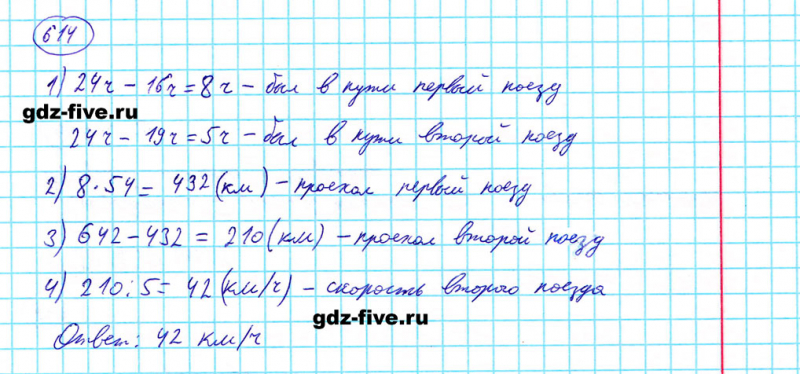 614
1) 24ч - 16ч = 8ч - был в пути первый поезд
gdz-five.ru
24ч - 19ч = 5ч - был в пути второй поезд
2) 8 · 54 = 432 (км) - проехал первый поезд
3) 642 - 432 = 210 (км) - проехал второй поезд
4) 210 : 5 = 42 (км/ч) - скорость второго поезда
gdz-five.ru
Ответ: 42 км/ч